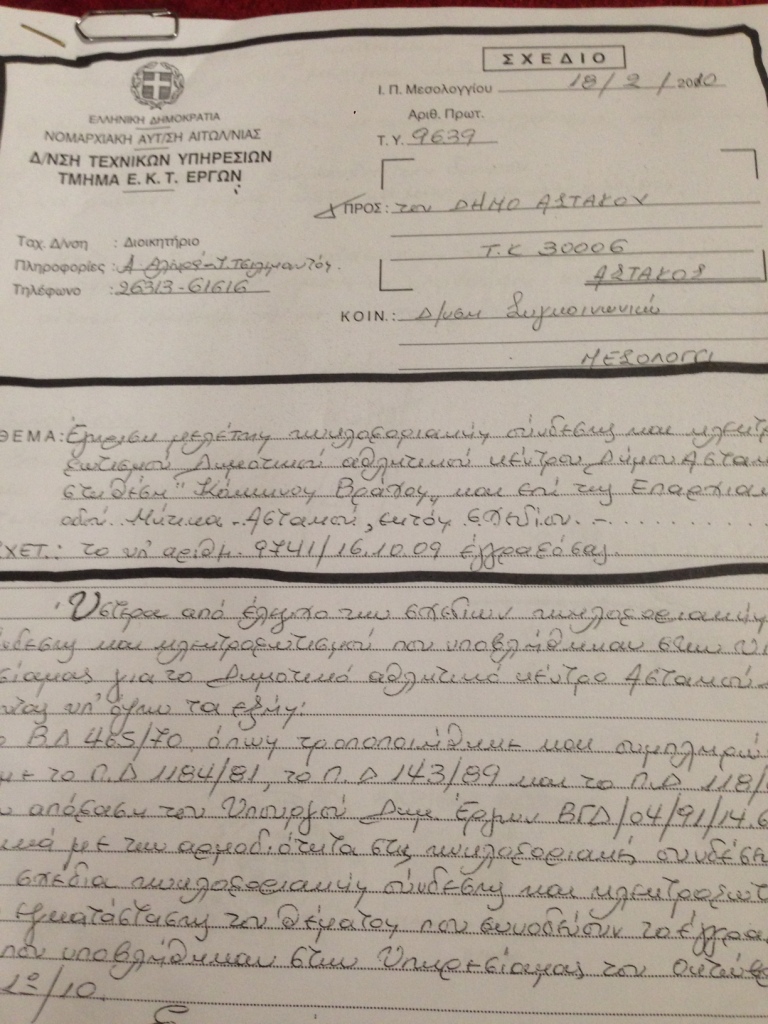 ΣΧΕΔΙΟ
Ι. Π. Μεσολογγίου 18/2/2010
Αριθ. Πρωτ.
Τ.Υ. 9639
ΕΛΛΗΝΙΚΗ ΔΗΜΟΚΡΑΤΙΑ
ΝΟΜΑΡΧΙΑΚΗ ΑΥΤ/ΣΗ ΑΙΤΩΛ/ΝΙΑΣ
Δ/ΝΣΗ ΤΕΧΝΙΚΩΝ ΥΠΗΡΕΣΙΩΝ
ΤΜΗΜΑ Ε. Κ. Τ. ΕΡΓΩΝ
Ταχ. Δ/νση : Διοικητήριο
Πληροφορίες :
Τηλέφωνο : 26313-61616
ΠΡΟΣ: τον ΔΗΜΟ ΑΣΤΑΚΟΥ
Τ.Κ 30006
ΑΣΤΑΚΟΣ
ΚΟΙΝ.: Δ/νση Συγκοινωνιών
ΜΕΣΟΛΟΓΓΙ
ΘΕΜΑ: Έγκριση μελέτης κυκλοφοριακής σύνδεσης και ηλεκτρ
φωτισμού Δημοτικού αθλητικού κέντρου Δήμου Αστακ
στη θέση "Κόκκινος Βράχος" και επί της Επαρχιακ
οδού Μύτικα - Αστακού, εκτός σχεδίου. -........
ΣΧΕΤ.: το υπ' αριθμ. 9741/16.10.09 έγγραφό σας.
Ύστερα από έλεγχο των σχεδίων κυκλοφοριακής
νδεσης και ηλεκτροφωτισμού που υποβλήθηκαν στην Υπ
σία μας για το Δημοτικό αθλητικό κέντρο Αστακού
ντας υπ' όψιν τα εξής:
ο ΒΔ 465/70, όπως τροποποιήθηκε και συμπληρώ
με το Π.Δ 1184/81, το Π.Δ 143/89 και το Π.Δ 118/
ν απόφαση του Υπουργού Δημ. Έργων ΒΓΔ/04/91/14.6
ικά με την αρμοδιότητα στις κυκλοφοριακές συνδέσε
σχέδια κυκλοφοριακής σύνδεσης και ηλεκτροφωτ
εγκατάστασης του θέματος που συνοδεύουν το έγγρα
που υποβλήθηκαν στην Υπηρεσία μας τον Οκτώβρ
1º/10.